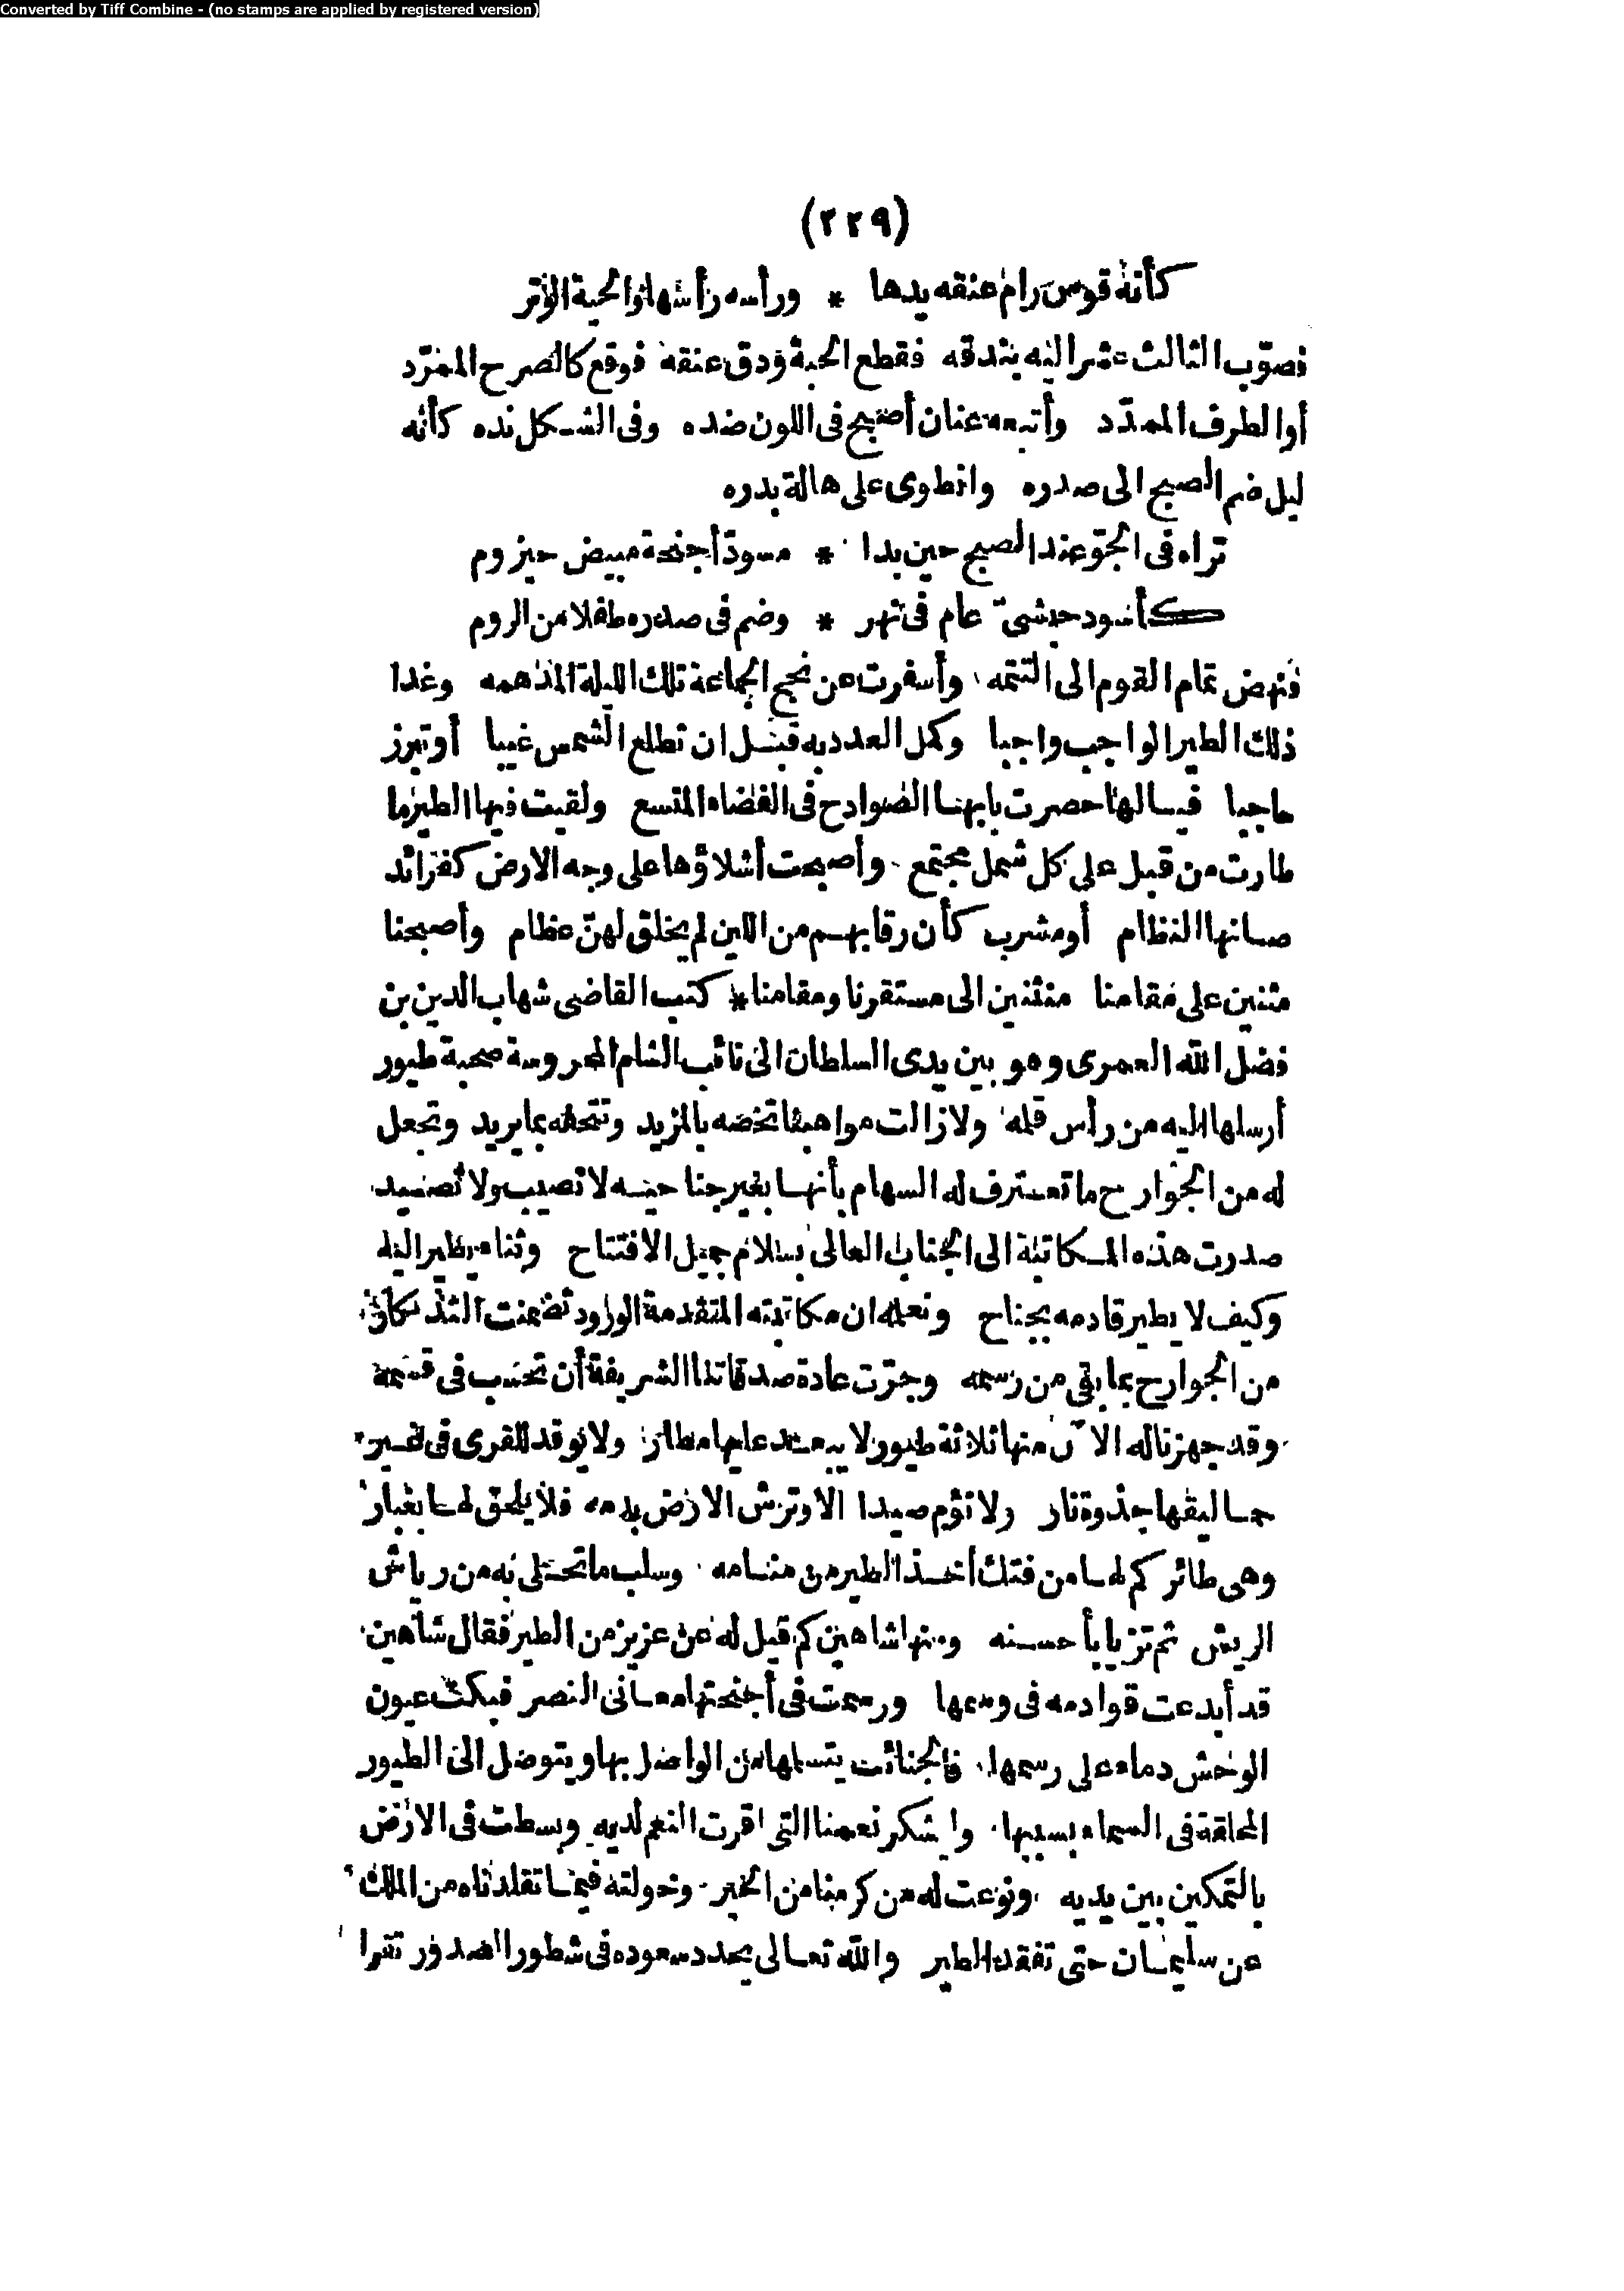 Converted by Tiff Combine - (no stamps are applied by registered version)
(٢٢٩)
كأنه قوس رام عنقه يدها * ورأسه رأسها والحبة الوتر
فصوّب الثالث عشر اليه بندقه فقطع الحبة ودق عنقه فوقع كالصرح الممرّد
أو الطرف الممدّد وأتبعه عنان أصبح فى اللون ضده وفى الشكل نده كأنه
ليل ضم الصبح الى صدره وانطوى على هالة بدره
تراه فى الجوّ عند الصبح حين بدا * مسودّ أجنحة مبيض حيزوم
كأسود حبشىّ عام فى نهر * وضم فى صدره طفلا من الروم
فنهض تمام القوم الى التتمه وأسفرت عن نجح الجماعة تلك الليلة المدلهمه وغدا
ذلك الطير الواجب واجبا وكمل العدد به قبل ان تطلع الشمس عينا أو تبرز
حاجبا فيالها حصرت بابهنا الصوادح فى الفضاء المتسع ولقيت فيها الطير ما
طارت من قبل على كل شمل مجتمع وأصبحت أشلاؤها على وجه الارض كفرائد
صانها النظام أو مشرب كأن رقابهم من اللين لم يخلق لهنّ عظام وأصبحنا
مثنين على مقامنا منثنين الى مستقرنا ومقامنا * كتب القاضى شهاب الدين بن
فضل الله العمرى وهو بين يدى السلطان الى نائب الشام المحروسة صحبة طيور
أرسلها اليه من رأس قلمه ولا زالت مواهبنا تخصه بالمزيد وتتحفه بما يريد وتجعل
له من الجوارح ما تعترف له السهام بأنها بغير جناحيه لا تصيب ولا تصيد
صدرت هذه المكاتبة الى الجناب العالى بسلام جميل الافتتاح وثناء يطير اليه
وكيف لا يطير قادمه بجناح ونعلمه ان مكاتبته المتقدمة الورود تضمنت التذكار
من الجوارح بما بقى من رسمه وجرّت عادة صدقاتنا الشريفة أن تحسب فى قسمه
وقد جهزنا له الآن منها ثلاثة طيور لا يبعد عليها مطار ولا يوقد للقرى فى غير
حماليقها جذوة نار ولا تؤم صيدا الا وترش الارض بدمه فلا يلحق لها بغبار
وهى طائر كم لها من فتك أخذ الطير من منامه وسلب ما تحلى به من رياش
الريش ثم تزيا بأحسنه ومنها شاهين كم قيل له عن عزيز من الطير فقال شاهين
قد أبدعت قوادمه فى وسمها ورسمت فى أجنحتها معانى النصر فبكت عيون
الوحش دماء على رسمها فالجناب يتسلمها من الواصل بها ويتوصل الى الطيور
المحلقة فى السماء بسببها واشكر نعمنا التى اقرت النعم لديه وبسطت فى الارض
بالتمكين بين يديه ونوعت له من كرمنا من الخير وخولته فيما تقلدناه من الملك
عن سليمان حتى تفقد الطير والله تعالى يجدد سعوده فى شطور الصدور تقرا